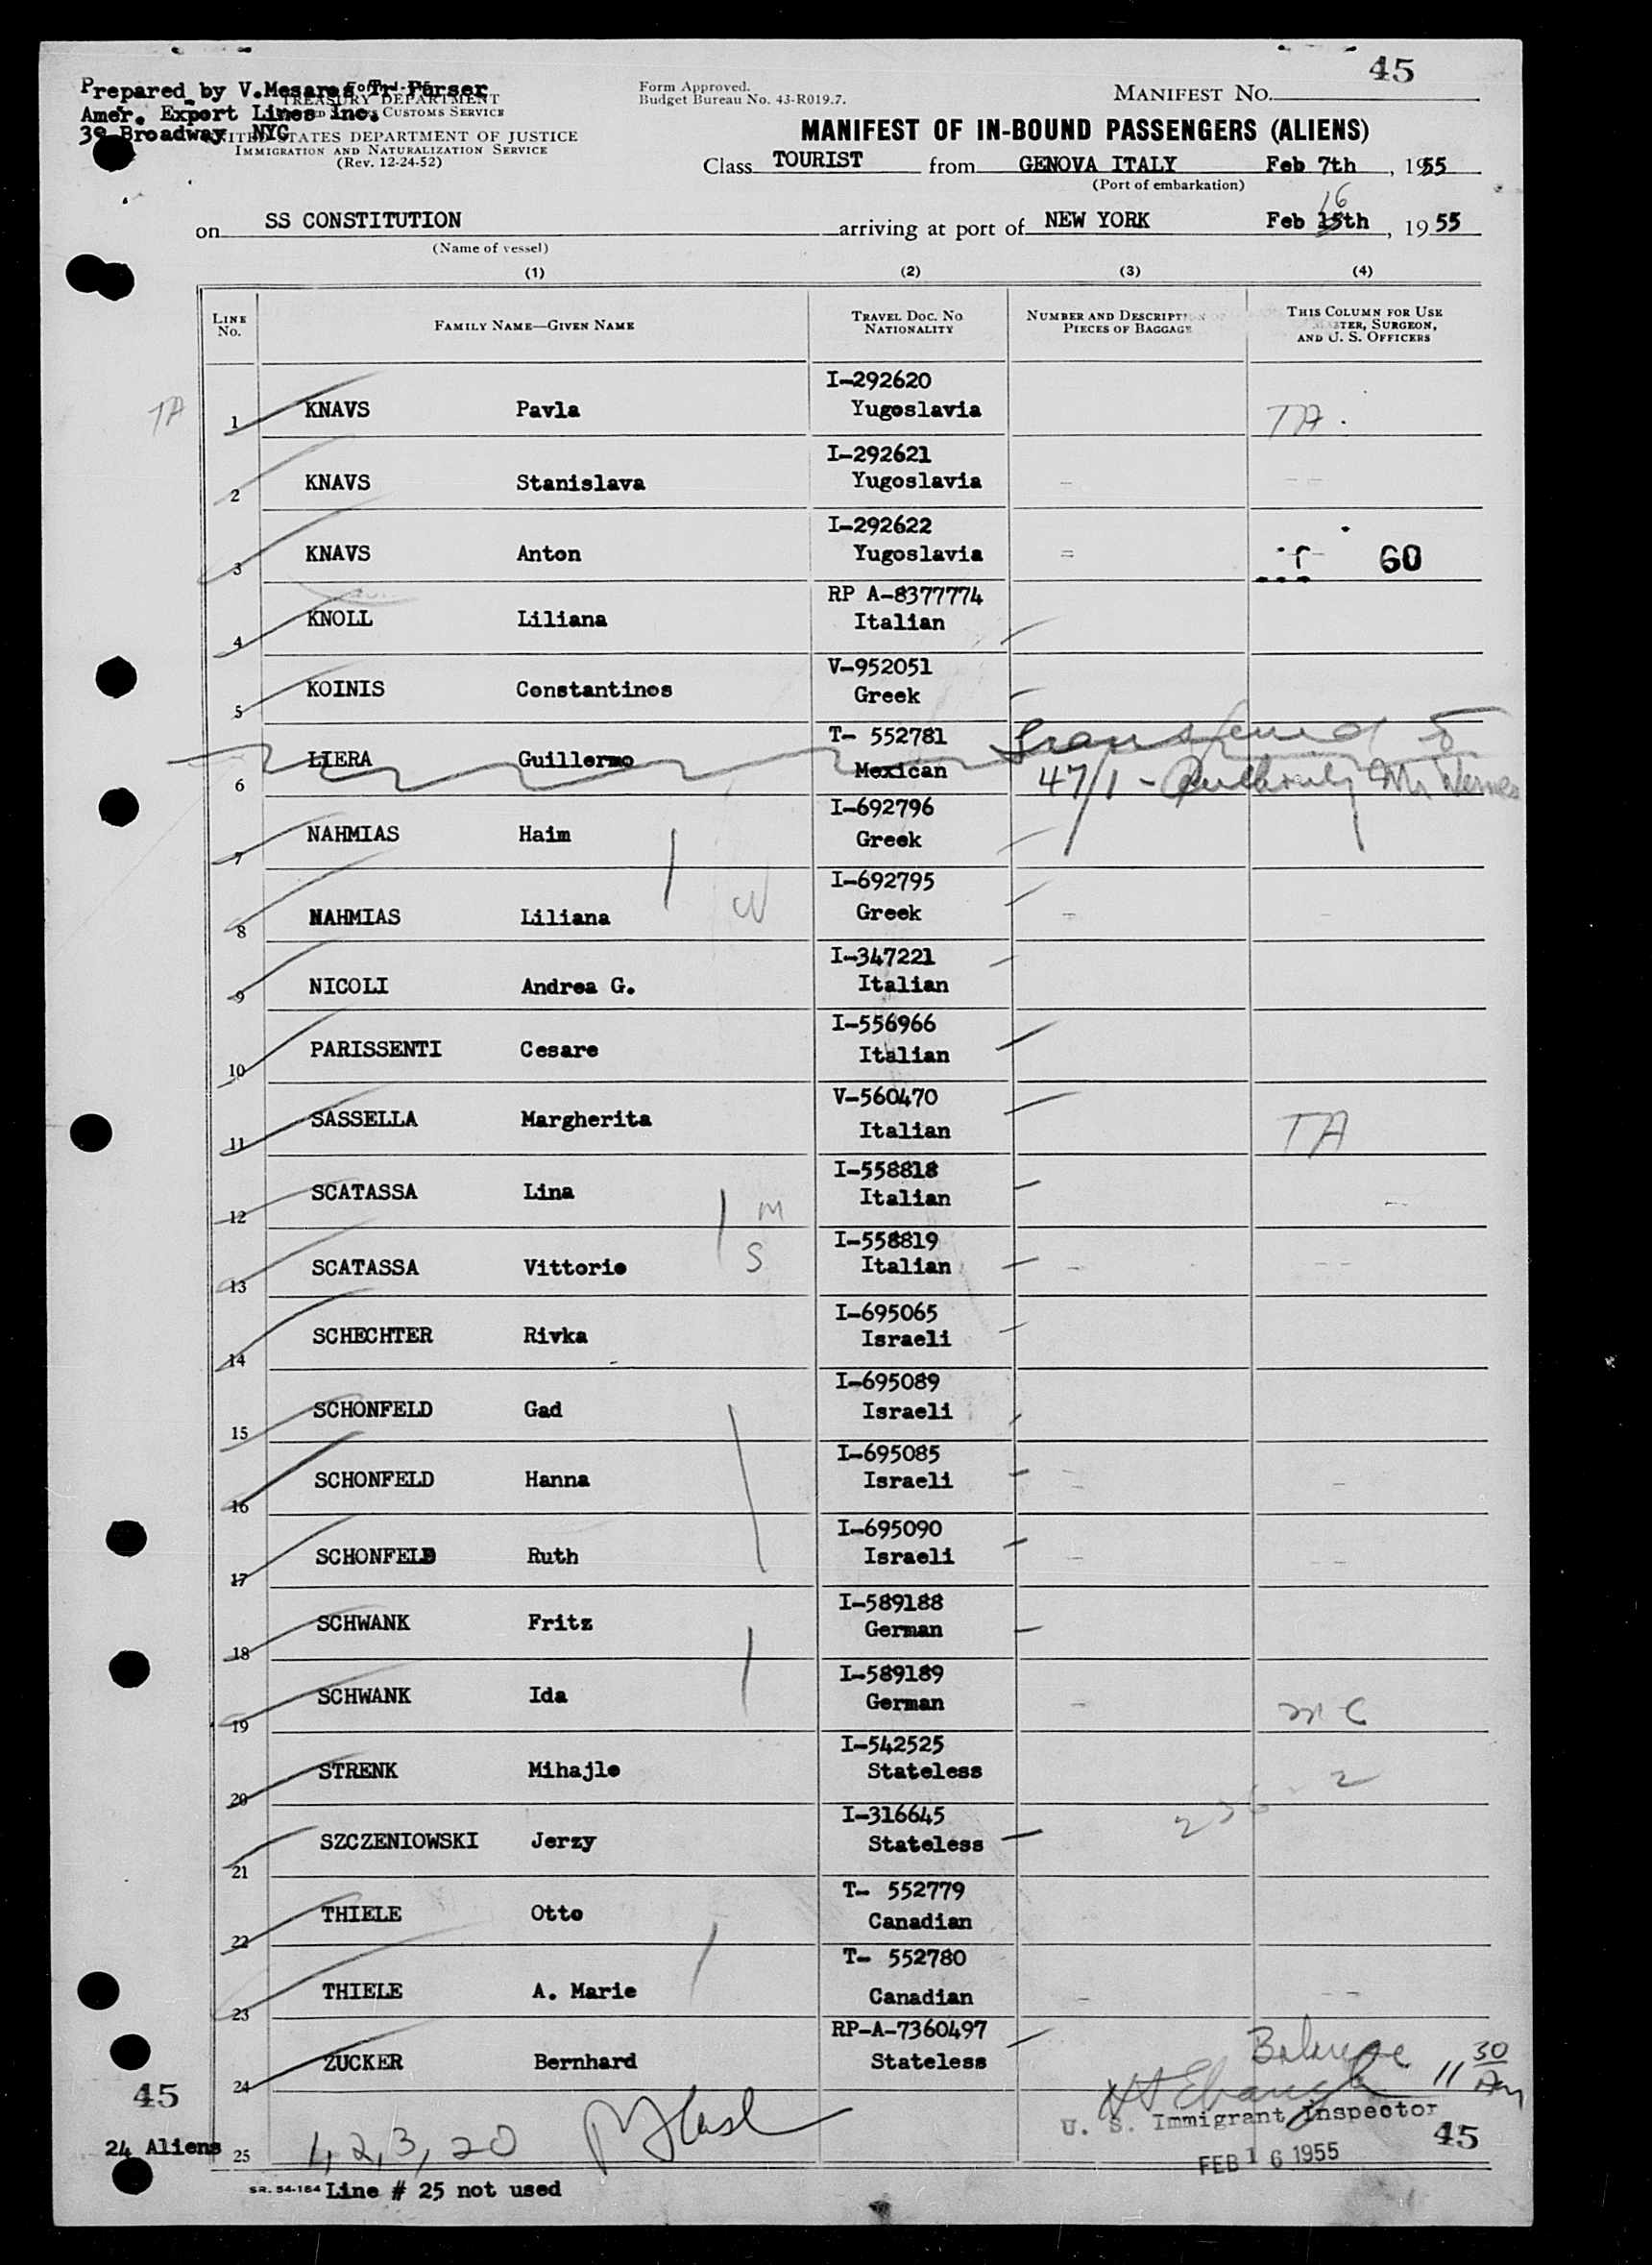 45
Prepared by V.Mesares Tr Purser
TREASURY DEPARTMENT
Amer. Export Lines Inc. CUSTOMS SERVICE
39 Broadway NYC
UNITED STATES DEPARTMENT OF JUSTICE
IMMIGRATION AND NATURALIZATION SERVICE
(Rev. 12-24-52)
Form Approved.
Budget Bureau No. 43-R019.7.
MANIFEST NO.
MANIFEST OF IN-BOUND PASSENGERS (ALIENS)
Class TOURIST from GENOVA ITALY Feb 7th, 1955
(Port of embarkation)
16
on SS CONSTITUTION arriving at port of NEW YORK Feb 15th, 1955
(Name of vessel)
(1) (2) (3) (4)
LINE NO. FAMILY NAME—GIVEN NAME TRAVEL DOC. NO NATIONALITY NUMBER AND DESCRIPTION OF PIECES OF BAGGAGE THIS COLUMN FOR USE MASTER, SURGEON, AND U. S. OFFICERS
I-292620
TA 1 KNAVS Pavla Yugoslavia TA.
I-292621
2 KNAVS Stanislava Yugoslavia
I-292622
3 KNAVS Anton Yugoslavia 60
RP A-8377774
4 KNOLL Liliana Italian
V-952051
5 KOINIS Constantinos Greek
T- 552781 Transferred to
6 LIERA Guillermo Mexican 47/1 - Authority Mr
I-692796
7 NAHMIAS Haim Greek
I-692795
8 NAHMIAS Liliana W Greek
I-347221
9 NICOLI Andrea G. Italian
I-556966
10 PARISSENTI Cesare Italian
V-560470
11 SASSELLA Margherita Italian TA
I-558818
12 SCATASSA Lina M Italian
I-558819
13 SCATASSA Vittorio S Italian
I-695065
14 SCHECHTER Rivka Israeli
I-695089
15 SCHONFELD Gad Israeli
I-695085
16 SCHONFELD Hanna Israeli
I-695090
17 SCHONFELD Ruth Israeli
I-589188
18 SCHWANK Fritz German
I-589189
19 SCHWANK Ida German
I-542525
20 STRENK Mihajlo Stateless
I-316645
21 SZCZENIOWSKI Jerzy Stateless
T- 552779
22 THIELE Otto Canadian
T- 552780
23 THIELE A. Marie Canadian
RP-A-7360497
24 ZUCKER Bernhard Stateless
11 30 AM
45
U. S. Immigrant Inspector
45
24 Aliens 25 1, 2, 3, 20
FEB 16 1955
SR. 54-184 Line # 25 not used